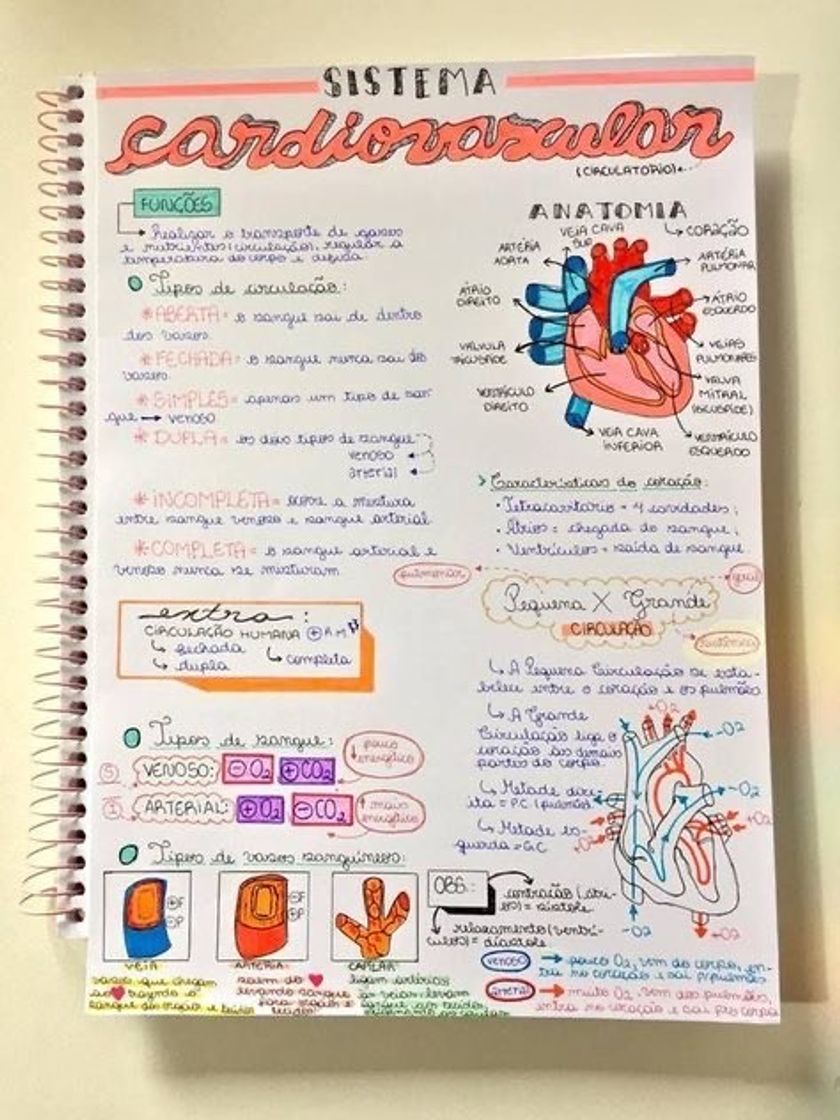 SISTEMA
cardiovascular
(CIRCULATÓRIO)
FUNÇÕES
Realizar o transporte de gases
e nutrientes (circulação), regular a
temperatura do corpo e defesa.
Tipos de circulação:
*ABERTA= o sangue sai de dentro
dos vasos.
*FECHADA= o sangue nunca sai dos
vasos.
*SIMPLES= apenas um tipo de san-
gue → venoso
*DUPLA= os dois tipos de sangue
venoso
arterial
*INCOMPLETA= ocorre a mistura
entre sangue venoso e sangue arterial
*COMPLETA= o sangue arterial e
venoso nunca se misturam
extra:
CIRCULAÇÃO HUMANA
fechada
dupla
completa
Tipos de sangue:
VENOSO: -O2 +CO2
pouco
energético
ARTERIAL: +O2 -CO2
mais
energético
Tipos de vasos sanguíneos:
+F
-P
VEIA
-F
+P
ARTÉRIA
CAPILAR
vasos que chegam
ao ♥ trazendo o
sangue dos órgãos e tecidos
saem do ♥
levando sangue
para órgãos e
tecidos
ligam artérias
às veias levam
sangue aos tecidos
ANATOMIA
CORAÇÃO
VEIA CAVA
SUP
ARTÉRIA
AORTA
ARTÉRIA
PULMONAR
ÁTRIO
DIREITO
ÁTRIO
ESQUERDO
VÁLVULA
TRICUSPIDE
VEIAS
PULMONARES
VENTRÍCULO
DIREITO
VALVA
MITRAL
(BICUSPÍDE)
VEIA CAVA
INFERIOR
VENTRÍCULO
ESQUERDO
Características do coração:
• Tetracavitário = 4 cavidades;
• Átrios = chegada do sangue;
• Ventrículos = saída de sangue.
pulmonar
geral
Pequena X Grande
CIRCULAÇÃO
sistêmica
A Pequena Circulação se esta-
belece entre o coração e os pulmões
A Grande
Circulação liga o
coração às demais
partes do corpo.
Metade dire-
ita = P.C (pulmão)
Metade es-
querda = G.C
+O2
-O2
-O2
+O2
+O2
-O2
+O2
OBS.:
contração (átri-
os) = sístole
relaxamento (ventrí-
culos) = diástole
venoso → pouco O2, vem do corpo, en-
tra no coração e sai p/pulmões
arterial → muito O2, vem dos pulmões,
entra no coração e sai pro corpo